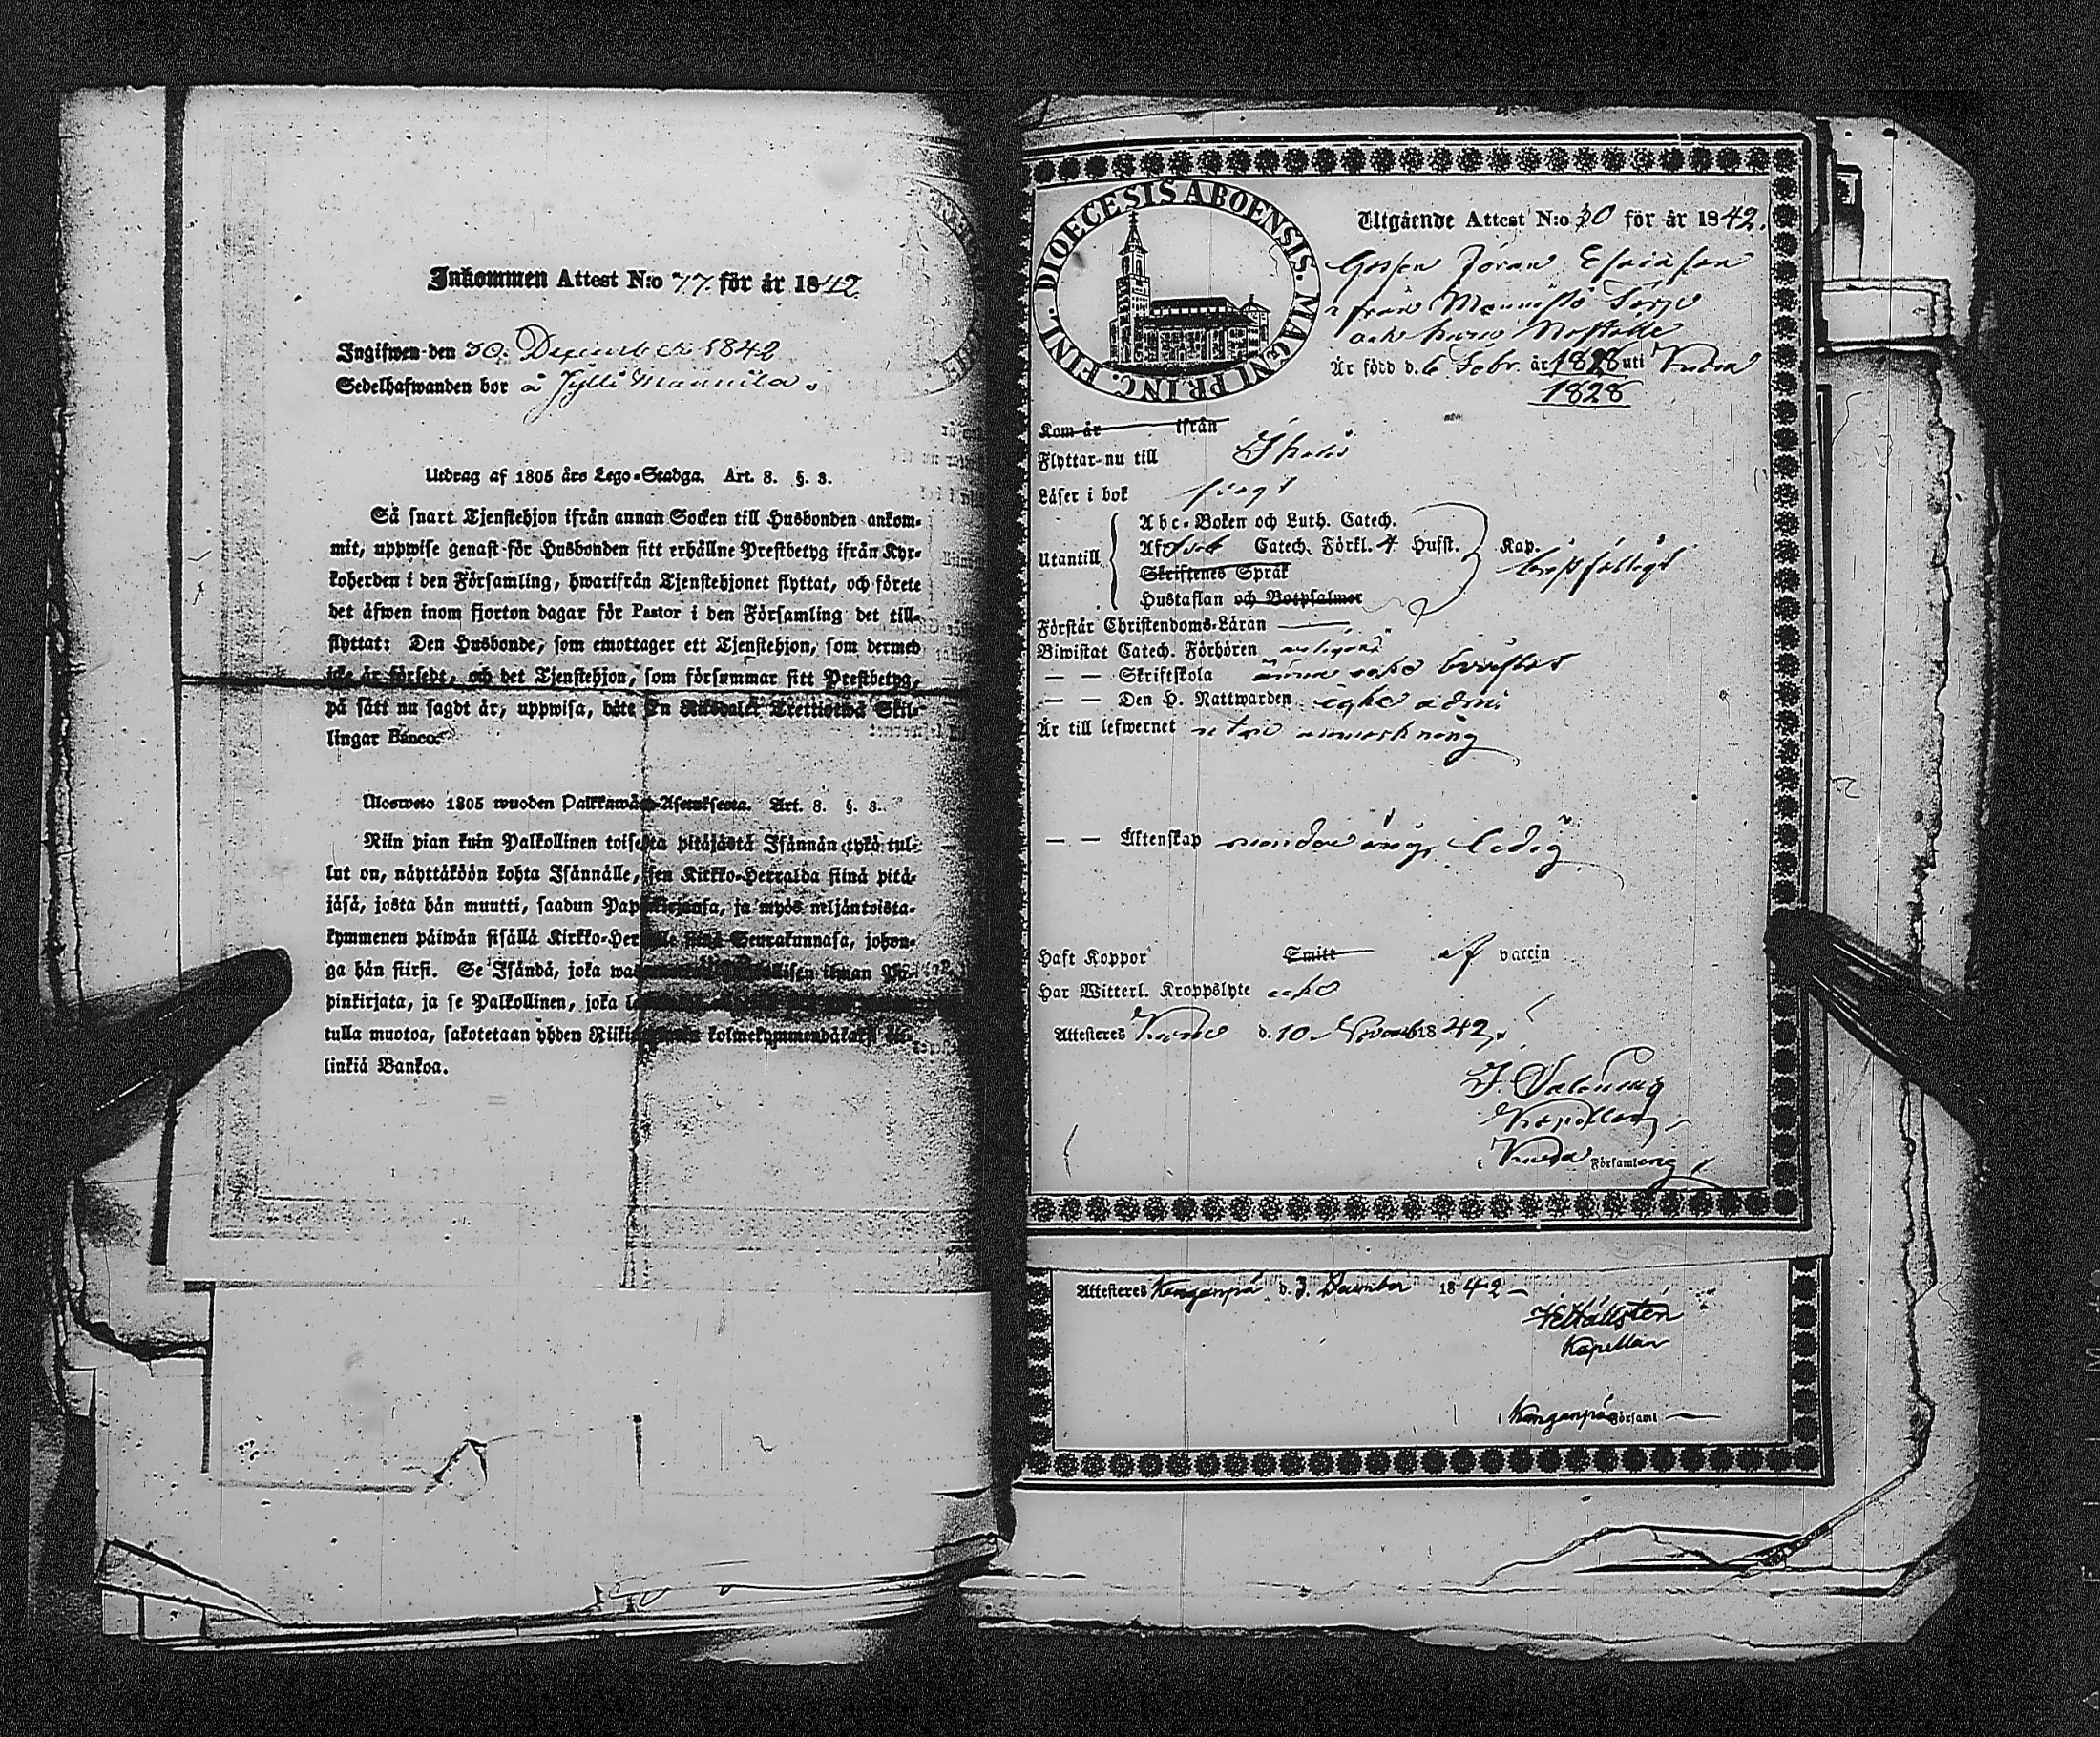 Inkommen Attest N:o 77 för år 1842.
Ingifwen den 30. December 1842
Sedelhafwanden bor å Jylli Mannila.
Utdrag af 1805 års Lego-Stadga. Art. 8. §. 3.
Så snart Tjenstehjon ifrån annan Socken till Husbonden ankom-
mit, uppwise genast för Husbonden sitt erhållne Prestbetyg ifrån Kyr-
koherden i den Församling, hwarifrån Tjenstehjonet flyttat, och förete
det äfwen inom fjorton dagar för Pastor i den Församling det till-
flyttat: Den Husbonde, som emottager ett Tjenstehjon, som dermed
icke är försedt, och det Tjenstehjon, som försummar sitt Prestbetyg,
på sätt nu sagdt är, uppwisa, böte En Riksdaler Trettiotwå Skil-
lingar Banco.
Uloswето 1805 wuoden Palkkawäen-Asetuksesta. Art. 8. §. 8.
Niin pian kuin Palkollinen toisesta pitäjästä Isännän tykö tul-
lut on, näyttäköön kohta Isännälle, sen Kirkko-Herralda siinä pitä-
jäsä, josta hän muutti, saadun Papinkirjansa, ja myös neljäntoista-
kymmenen päiwän sisällä Kirkko-Herralle siinä Seurakunnasa, johon-
ga hän siirsi. Se Isändä, joka ilman Pa-
pinkirjata, ja se Palkollinen, joka
tulla muotoa, sakotetaan yhden Riikin kolmekymmendäkaksi kil-
linkiä Bankoa.
DIOECESIS ABOENSIS. MAGNI PRINC. FINL.
Utgående Attest N:o 30 för år 1842.
Gossen Jöran Esaiasson
från Mannistö Torp
Är född d. 6 Febr. år 1828 uti
1828
Kom år ifrån
Flyttar nu till Ikalis
Läser i bok
Utantill
Abc-Boken och Luth. Catech.
Af Catech. Förkl. 4 Husst. Kap.
Skriftenes Språk
Hustaflan och Botpsalmer
Förstår Christendoms-Läran
Biwistat Catech. Förhören
— — Skriftskola
— — Den H. Nattwarden
Är till lefwernet utan anmärkning
— — Äktenskap minderårig, ledig
Haft Koppor Smitt af vaccin
Har Witterl. Kroppslyte
Attesteres d. 10 Novemb 1842.
Kapellan
i Församling
Attesteres Kanganpä d. 3. December 1842 —
Hällsten
Kapellan
i Kanganpä Församl